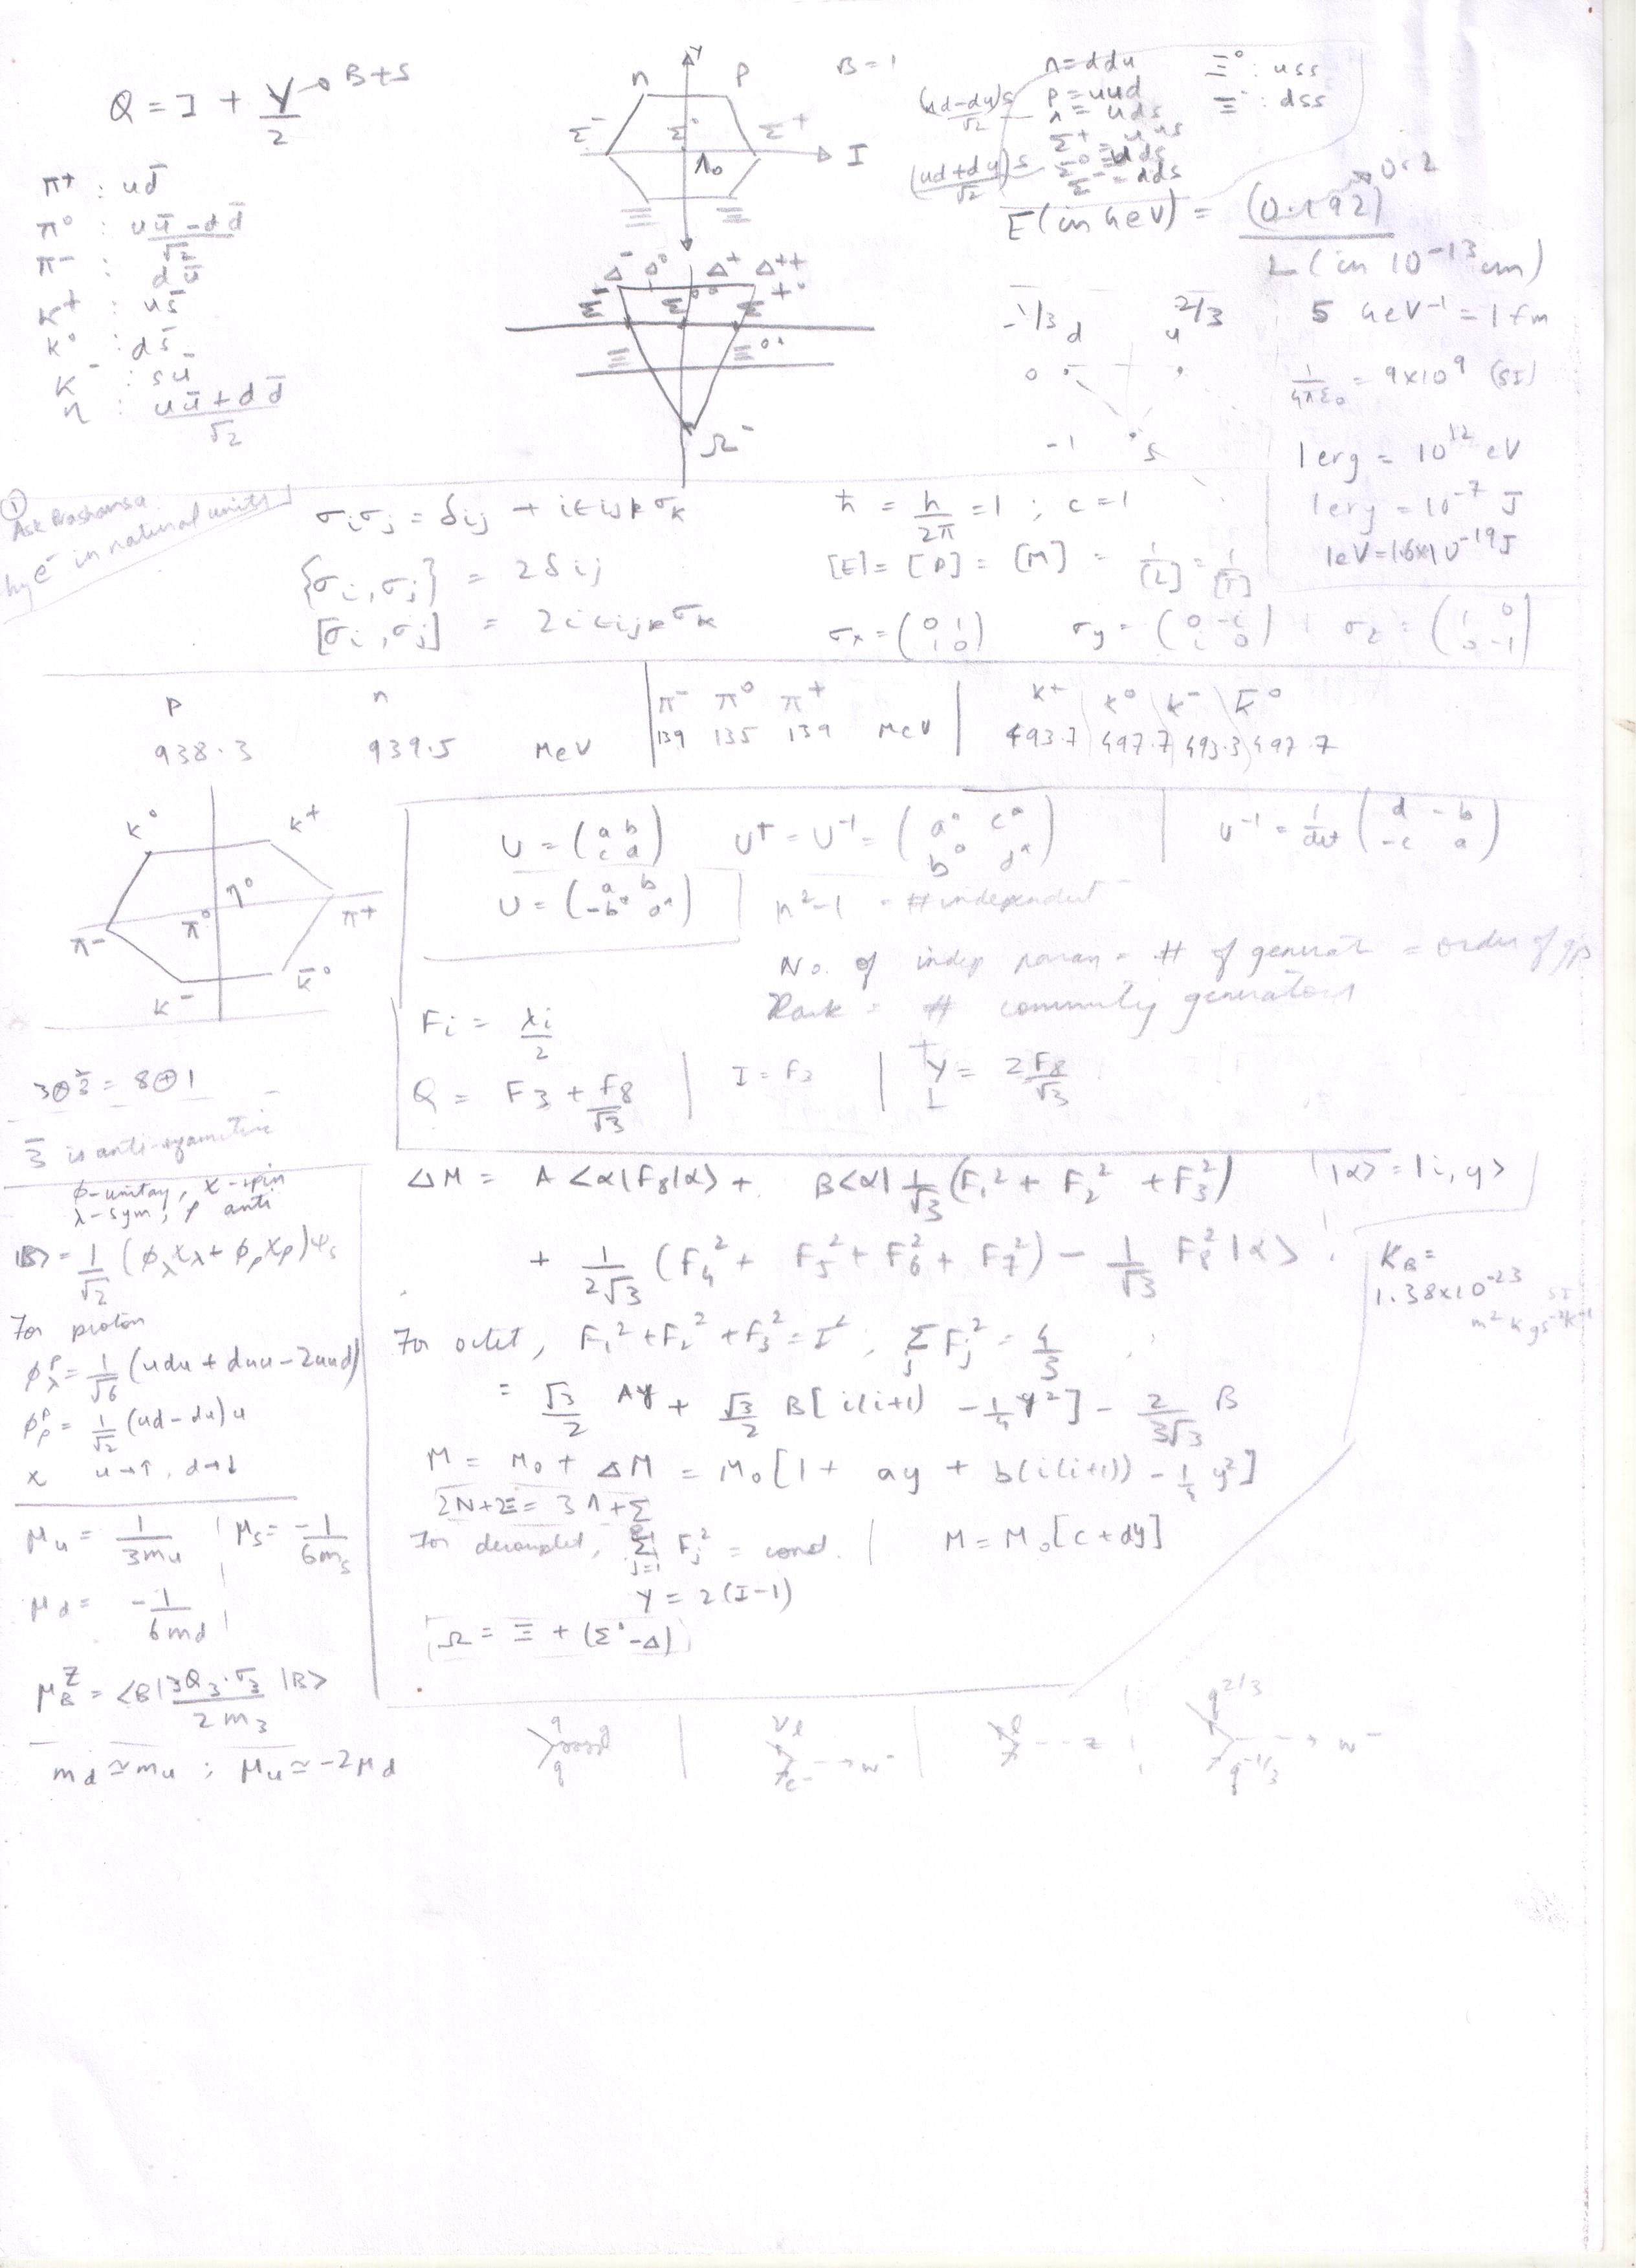 Q = I + Y/2 → B+S
π+ : ud̄
π° : uū-dd̄/√2
π- : dū
K+ : us̄
K° : ds̄
K- : sū
η : uū+dd̄/√2
Y
n p
Σ- Σ° Σ+
Λ0
I
Ξ Ξ
B=1
n=ddu
p=uud
(ud-du)s/√2 Λ = uds
Σ+ = uus
(ud+du)s/√2 Σ° = uds
Σ- = dds
Ξ° : uss
Ξ- : dss
Δ- Δ° Δ+ Δ++
Ω-
E(in GeV) = (0.192)/L(in 10^-13 cm) → 0.2
-1/3 d u 2/3
0
-1 s
5 GeV^-1 = 1 fm
1/4πε0 = 9×10^9 (SI)
1 erg = 10^12 eV
1 erg = 10^-7 J
1eV = 1.6×10^-19 J
① Ask Prashansa
e- in natural units
σiσj = δij + iεijkσk
{σi,σj} = 2δij
[σi,σj] = 2iεijkσk
ħ = h/2π = 1 ; c=1
[E] = [P] = [M] = 1/[L] = 1/[T]
σx = (0 1 / 1 0) σy = (0 -i / i 0) σz = (1 0 / 0 -1)
p n
938.3 939.5 MeV
π- π° π+
139 135 139 MeV
K+ K° K- K̄°
493.7 497.7 493.3 497.7
K° K+
η°
π- π° π+
K- K̄°
U = (a b / c d) U† = U^-1 = (a* c* / b* d*)
U^-1 = 1/det (d -b / -c a)
U = (a b / -b* a*)
n²-1 = # independent
No. of indep param = # of generat = order of gp
Rank = # commuting generators
Fi = λi/2
Q = F3 + F8/√3 | I = F3 | Y = 2F8/√3
3⊗3̄ = 8⊕1
3̄ is anti-symmetric
φ-unitary, χ-spin
λ-sym, ρ anti
|B> = 1/√2 (φλχλ + φρχρ)Ψs
For proton
φλ^p = 1/√6 (udu + duu - 2uud)
φρ^p = 1/√2 (ud-du)u
χ u→↑, d→↓
μu = 1/3mu | μs = -1/6ms
μd = -1/6md
μB^Z = <B| 3Q3·σ3/2m3 |B>
md ≃ mu ; μu ≃ -2μd
ΔM = A<α|F8|α> + B<α| 1/√3 (F1² + F2² + F3²)
|α> = |i,y>
+ 1/2√3 (F4² + F5² + F6² + F7²) - 1/√3 F8² |α>
KB =
1.38×10^-23 SI
m² kg s^-2 K^-1
For octet, F1² + F2² + F3² = I², Σj Fj² = 4/3
= √3/2 Ay + √3/2 B[i(i+1) - 1/4 y²] - 2/3√3 B
M = M0 + ΔM = M0[1 + ay + b(i(i+1)) - 1/4 y²]
2N+2Ξ = 3Λ+Σ
For decouplet, Σj=1 Fj² = const. | M = M0[c+dy]
Y = 2(I-1)
Ω = Ξ + (Σ*-Δ)
q g
q
νl
e- → W-
l
Z
q 2/3
q -1/3 → W-